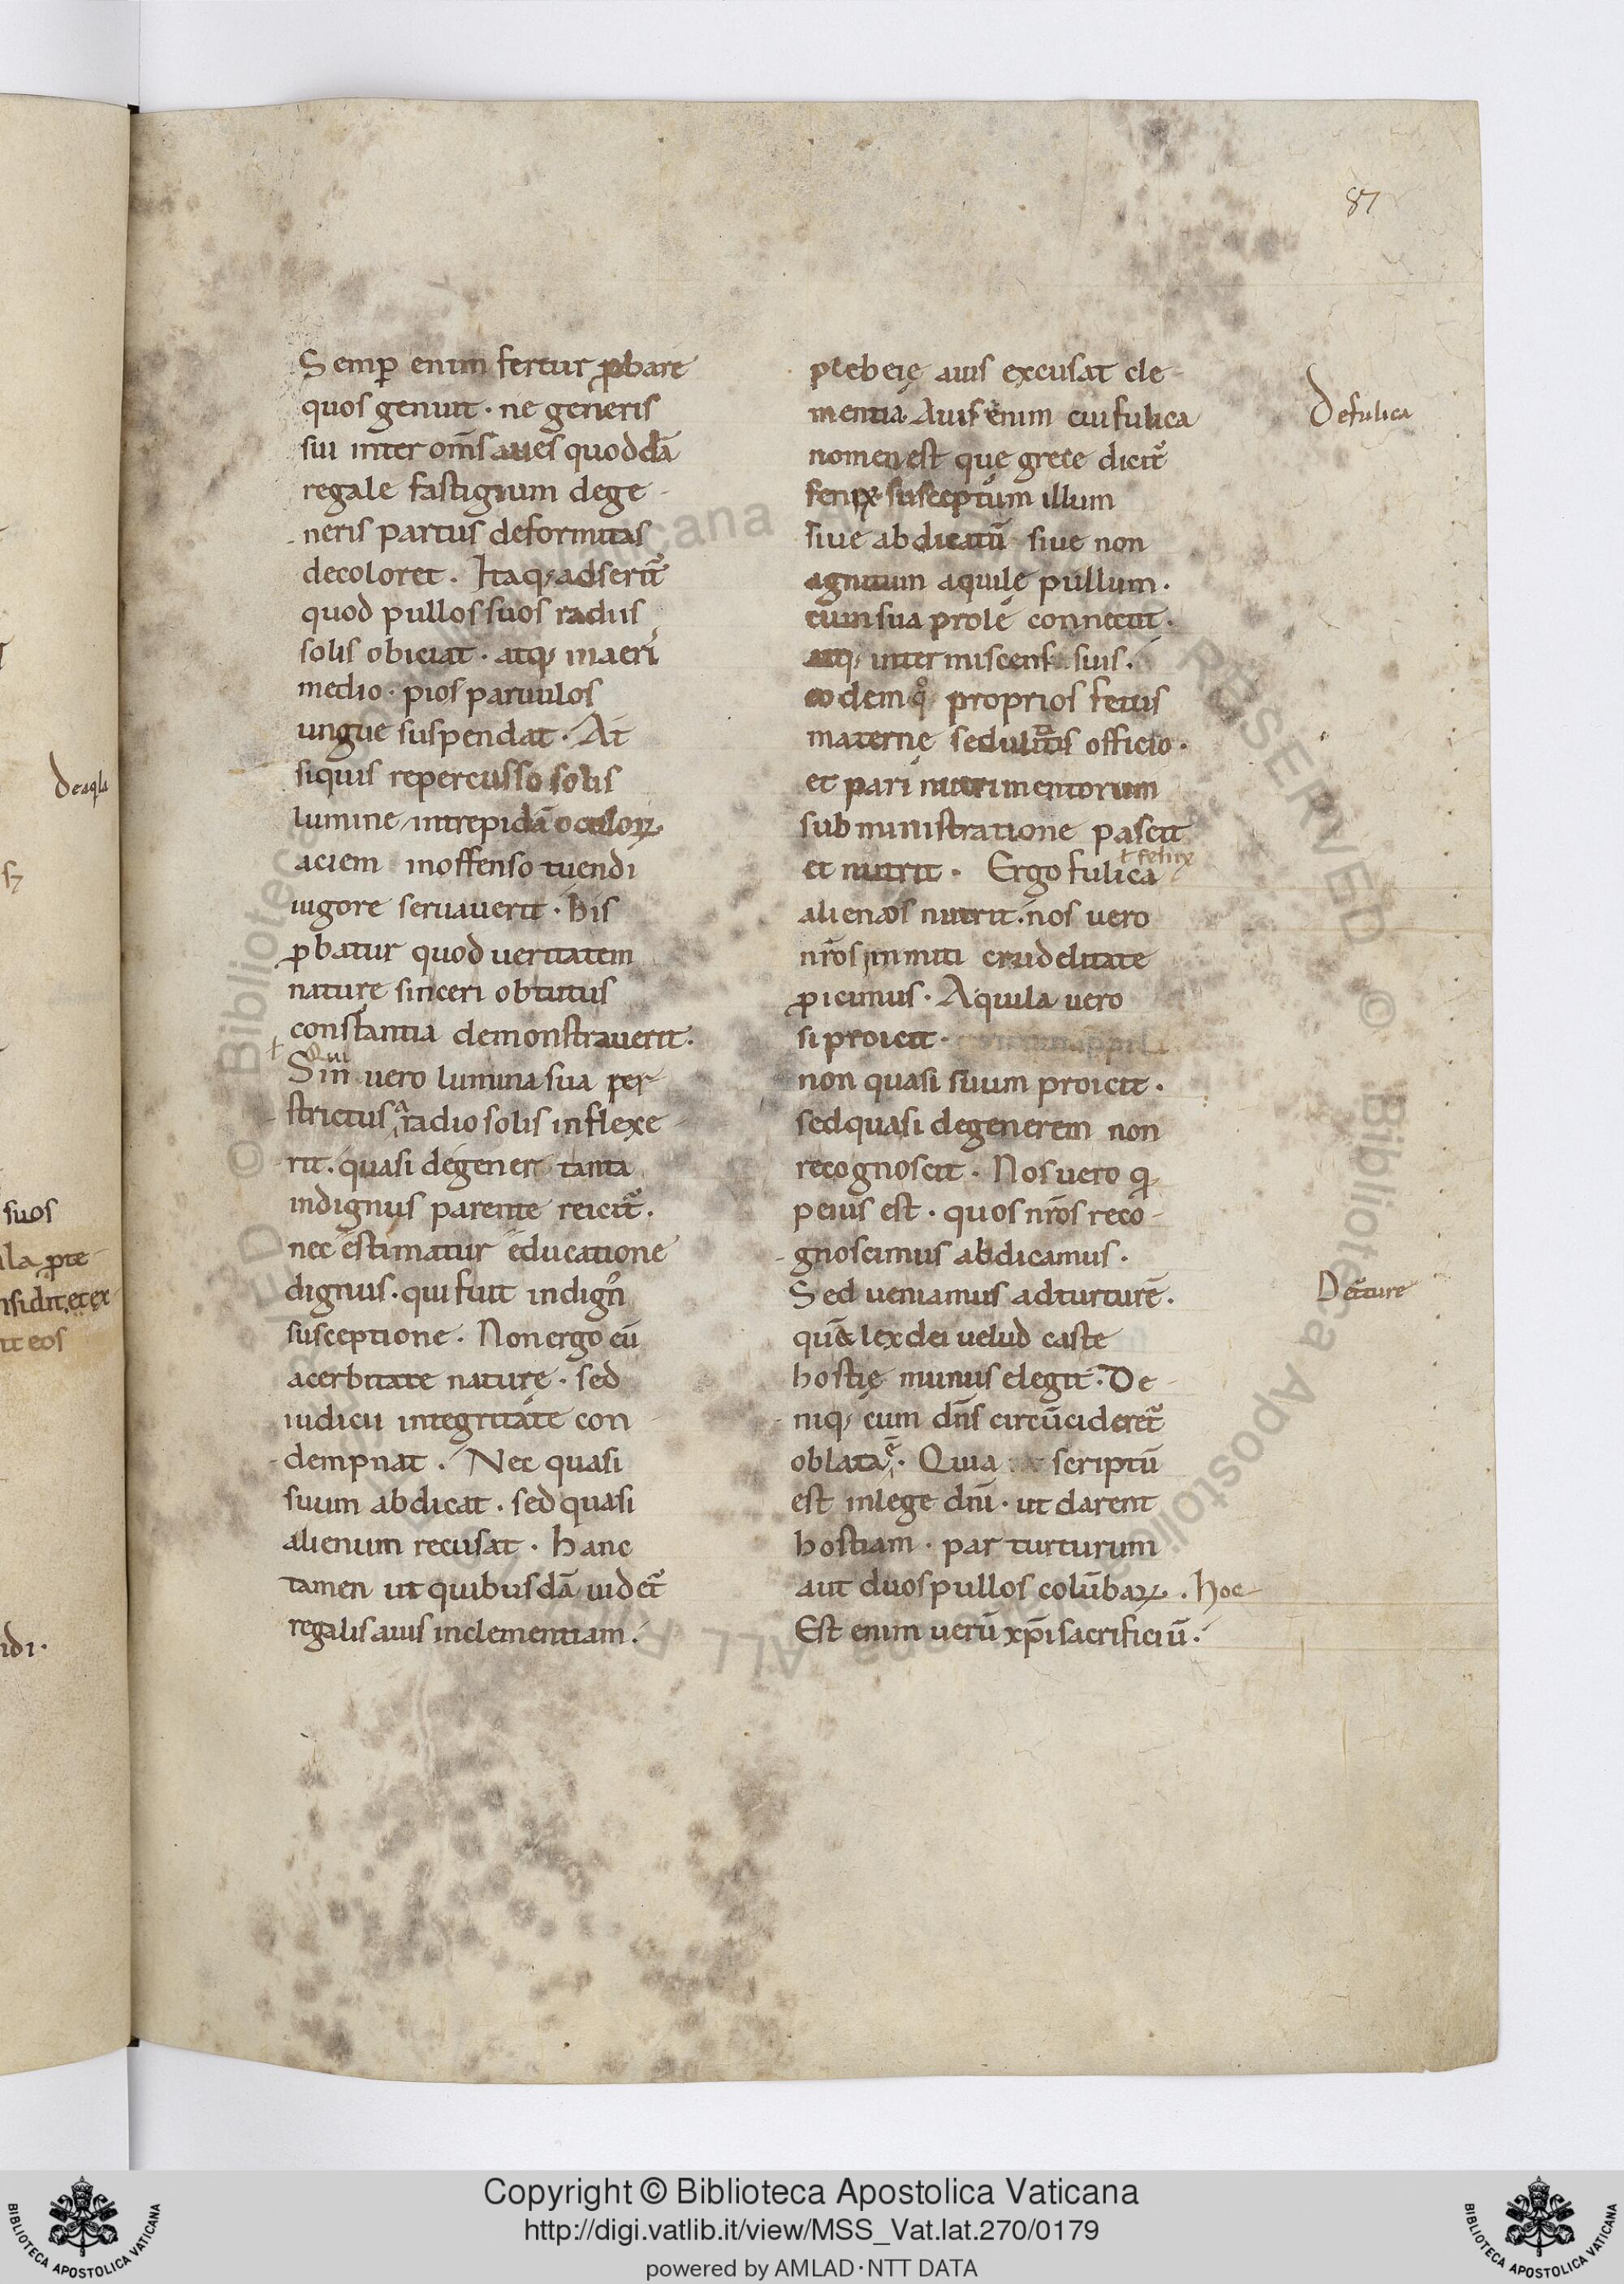 87
Semꝑ enim fertur ꝓbare
quos genuit · ne generis
sui inter om̄s aues quoddā
regale fastigium dege-
neris partus deformitas
decoloret . Itaq; adserit᷑
quod pullos suos radiis
solis obiciat · atq; in aeri
medio · pios paruulos
ungue suspendat · At
siquis repercusso solis
lumine intrepidā oculoꝝ
aciem inoffenso tuendi
uigore seruauerit · his
ꝓbatur quod ueritatem
naturę sinceri obtutus
constantia demonstrauerit .
ł Qui
Sin uero lumina sua per-
strictus a radio solis inflexe-
rit . quasi degener tanta
indignus parente reicit᷑ .
nec estimatur educatione
dignus . qui fuit indign᷒
susceptione . Non ergo eū
acerbitate naturę · sed
iudicii integritate con-
dempnat . Nec quasi
suum abdicat . sed quasi
alienum recusat · hanc
tamen ut quibusdā uidet᷑
regalis auis inclementiam .
plebeię auis excusat cle-
mentia . Auis enim cui fulica
nomen est quę grece dicit᷑
fenix susceptum illum
siue abdicatū siue non
agnitum aquilę pullum .
cum sua prole connectit .
atq; intermiscens suis .
eodem qͦ proprios fetus
maternę sedulitatis officio .
et pari nutrimentorum
subministratione pascit
et nutrit . Ergo fulica
ł felix
alienos nutrit . nos uero
nr̄os inmiti crudelitate
ꝓicimus . Aquila uero
si proicit .
non quasi suum proicit .
sed quasi degenerem non
recognoscit . Nos uero qͥ
peius est . quos nr̄os reco-
gnoscimus abdicamus .
Sed ueniamus ad turturē .
quē lex dei uelud castę
hostię munus elegit . De-
niq; cum dn̄s circūcideret᷑
oblata ē . Quia scriptū
est in lege dn̄i . ut darent
hostiam . par turturum
aut duos pullos colūbaꝝ . hoc
Est enim uerū xp̄i sacrificiū .
De fulica
De tͬture
De aqla
suos
la ꝓte-
nsidit, et ex-
it eos
idi .
Copyright © Biblioteca Apostolica Vaticana
http://digi.vatlib.it/view/MSS_Vat.lat.270/0179
powered by AMLAD·NTT DATA
BIBLIOTECA APOSTOLICA VATICANA
BIBLIOTECA APOSTOLICA VATICANA